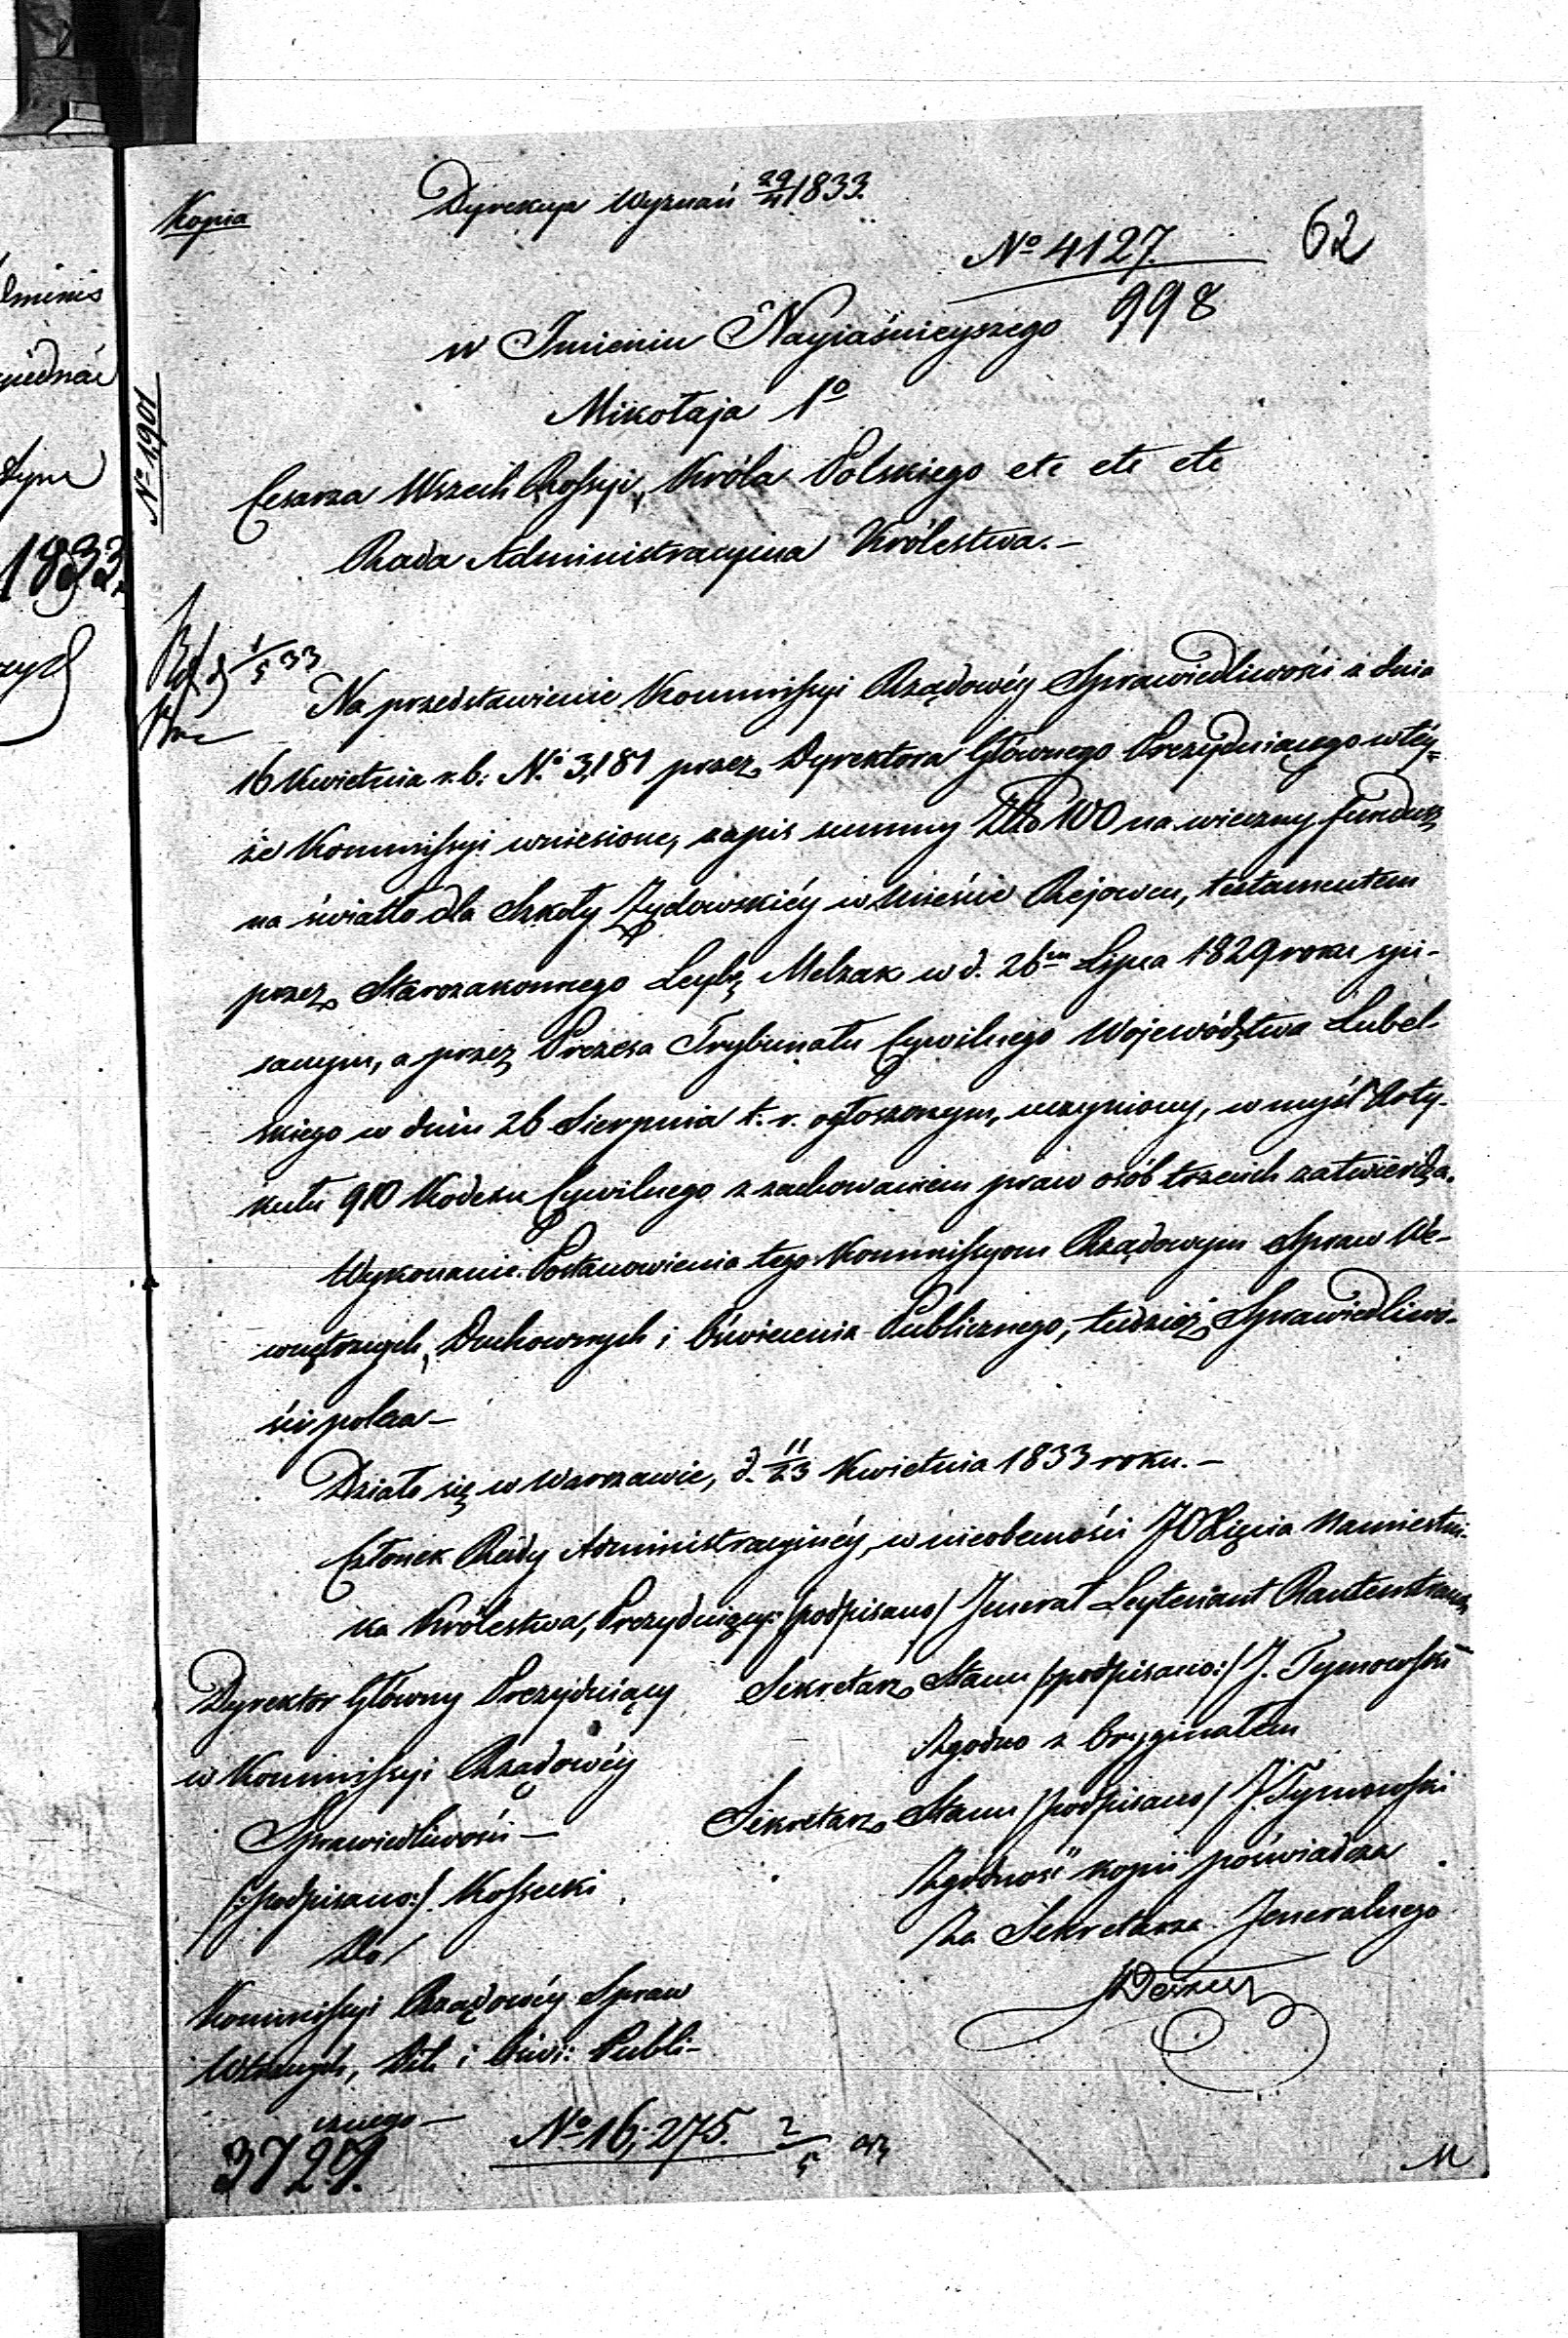 Kopia
Dyrekcya Wyznań 29/4 1833.
62
No 4127.
998
w Imieniu Nayiaśnieyszego
Mikołaja 1o
Cesarza Wszech Rossyi, Króla Polskiego etc etc etc
Rada Administracyina Królestwa.–
No 1,901
1/5 33
Na przedstawienie Kommissyi Rządowéy Sprawiedliwości z dnia
16 Kwietnia r. b: No 3,181 przez Dyrektora Głównego Prezyduiącego w téy-
że Kommissyi wniesione, zapis summy Złto 100 na wieczny fundusz
na światło dla Szkoły Żydowskiéy w Mieście Rejowcu, testamentem
przez Starozakonnego Leybę Melzak w d. 26m Lipca 1829 roku spi-
sanym, a przez Prezesa Trybunału Cywilnego Województwa Lubel-
skiego w dniu 26 Sierpnia t. r. ogłoszonym, uczyniony, w myśl Arty-
kułu 910 Kodexu Cywilnego z zachowaniem praw osób trzecich zatwierdza.
Wykonanie Postanowienia tego Kommissyom Rządowym Spraw We-
wnętrznych, Duchownych i Oświecenia Publicznego, tudzież Sprawiedliwo-
ści poleca –
Działo się w Warszawie, d. 11/23 Kwietnia 1833 roku. –
Członek Rady Administracyinéy, w nieobecności JO Xięcia Namiestni-
ka Królestwa, Prezyduiący: /podpisano/ Jenerał Leytenant Rautenstrauch
Dyrektor Główny Prezyduiący
w Kommissyi Rządowéy
Sprawiedliwości –
/:podpisano:/ Kossecki
Do
Kommissyi Rządowéy Spraw
Wtrznych, Dch i Oświ: Publi-
cznego –
3727.
Sekretarz Stanu /:podpisano:/ J. Tymowski
Zgodno z Oryginałem
Sekretarz Stanu /podpisano/ J. Tymowski
Zgodność kopii poświadcza
Za Sekretarza Jeneralnego
No 16,275. 2/5
M
1833.